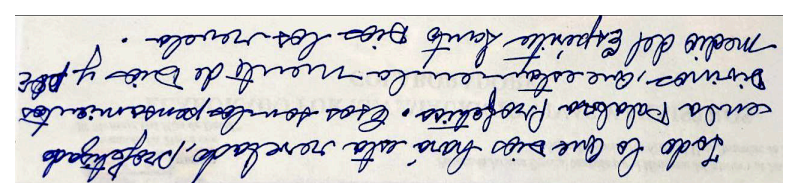 Todo lo que Dios hará está revelado, profetizado
en la Palabra Profética. Esos son los pensamientos
Divinos, que están en la mente de Dios y por
medio del Espíritu Santo Dios los revela.